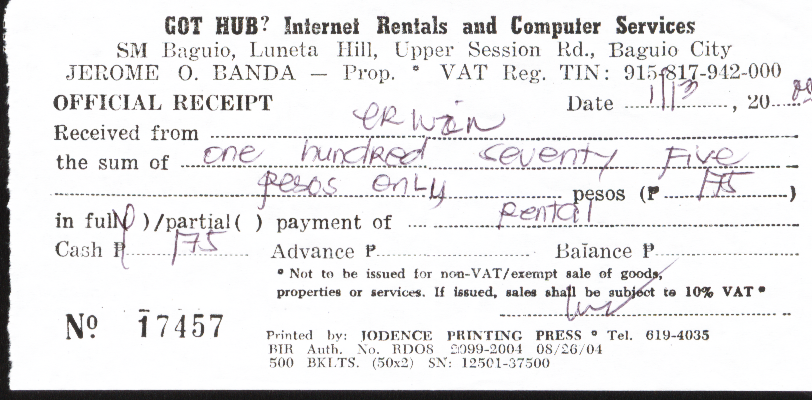 GOT HUB? Internet Rentals and Computer Services
SM Baguio, Luneta Hill, Upper Session Rd., Baguio City
JEROME O. BANDA — Prop. ° VAT Reg. TIN: 915-817-942-000
OFFICIAL RECEIPT Date 1/13, 20
Received from erwin
the sum of one hundred seventy five
pesos only pesos (₱ 175)
in full( )/partial( ) payment of rental
Cash ₱ 175 Advance ₱ Balance ₱
* Not to be issued for non-VAT/exempt sale of goods,
properties or services. If issued, sales shall be subject to 10% VAT *
Nº 17457
Printed by: JODENCE PRINTING PRESS ° Tel. 619-4035
BIR Auth. No. RDOS 2099-2004 08/26/04
500 BKLTS. (50x2) SN: 12501-37500